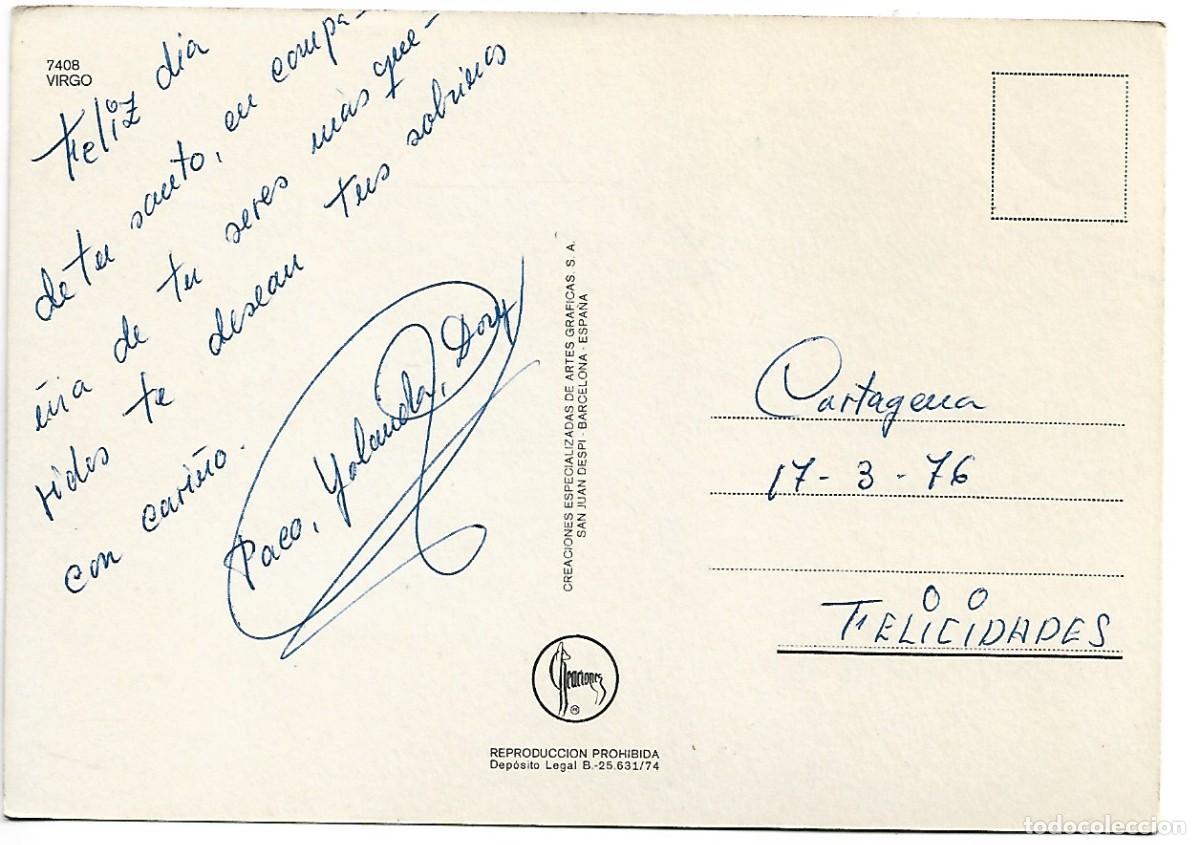 7408
VIRGO
Feliz dia
de tu santo, en compa-
ñia de tu seres más que-
ridos te desean tus sobrinos
con cariño.
Paco, Yolanda, Dory
CREACIONES ESPECIALIZADAS DE ARTES GRAFICAS. S. A.
SAN JUAN DESPI - BARCELONA - ESPAÑA
Cartagena
17-3-76
FELICIDADES
Creaciones
REPRODUCCION PROHIBIDA
Depósito Legal B.-25.631/74
todocoleccion